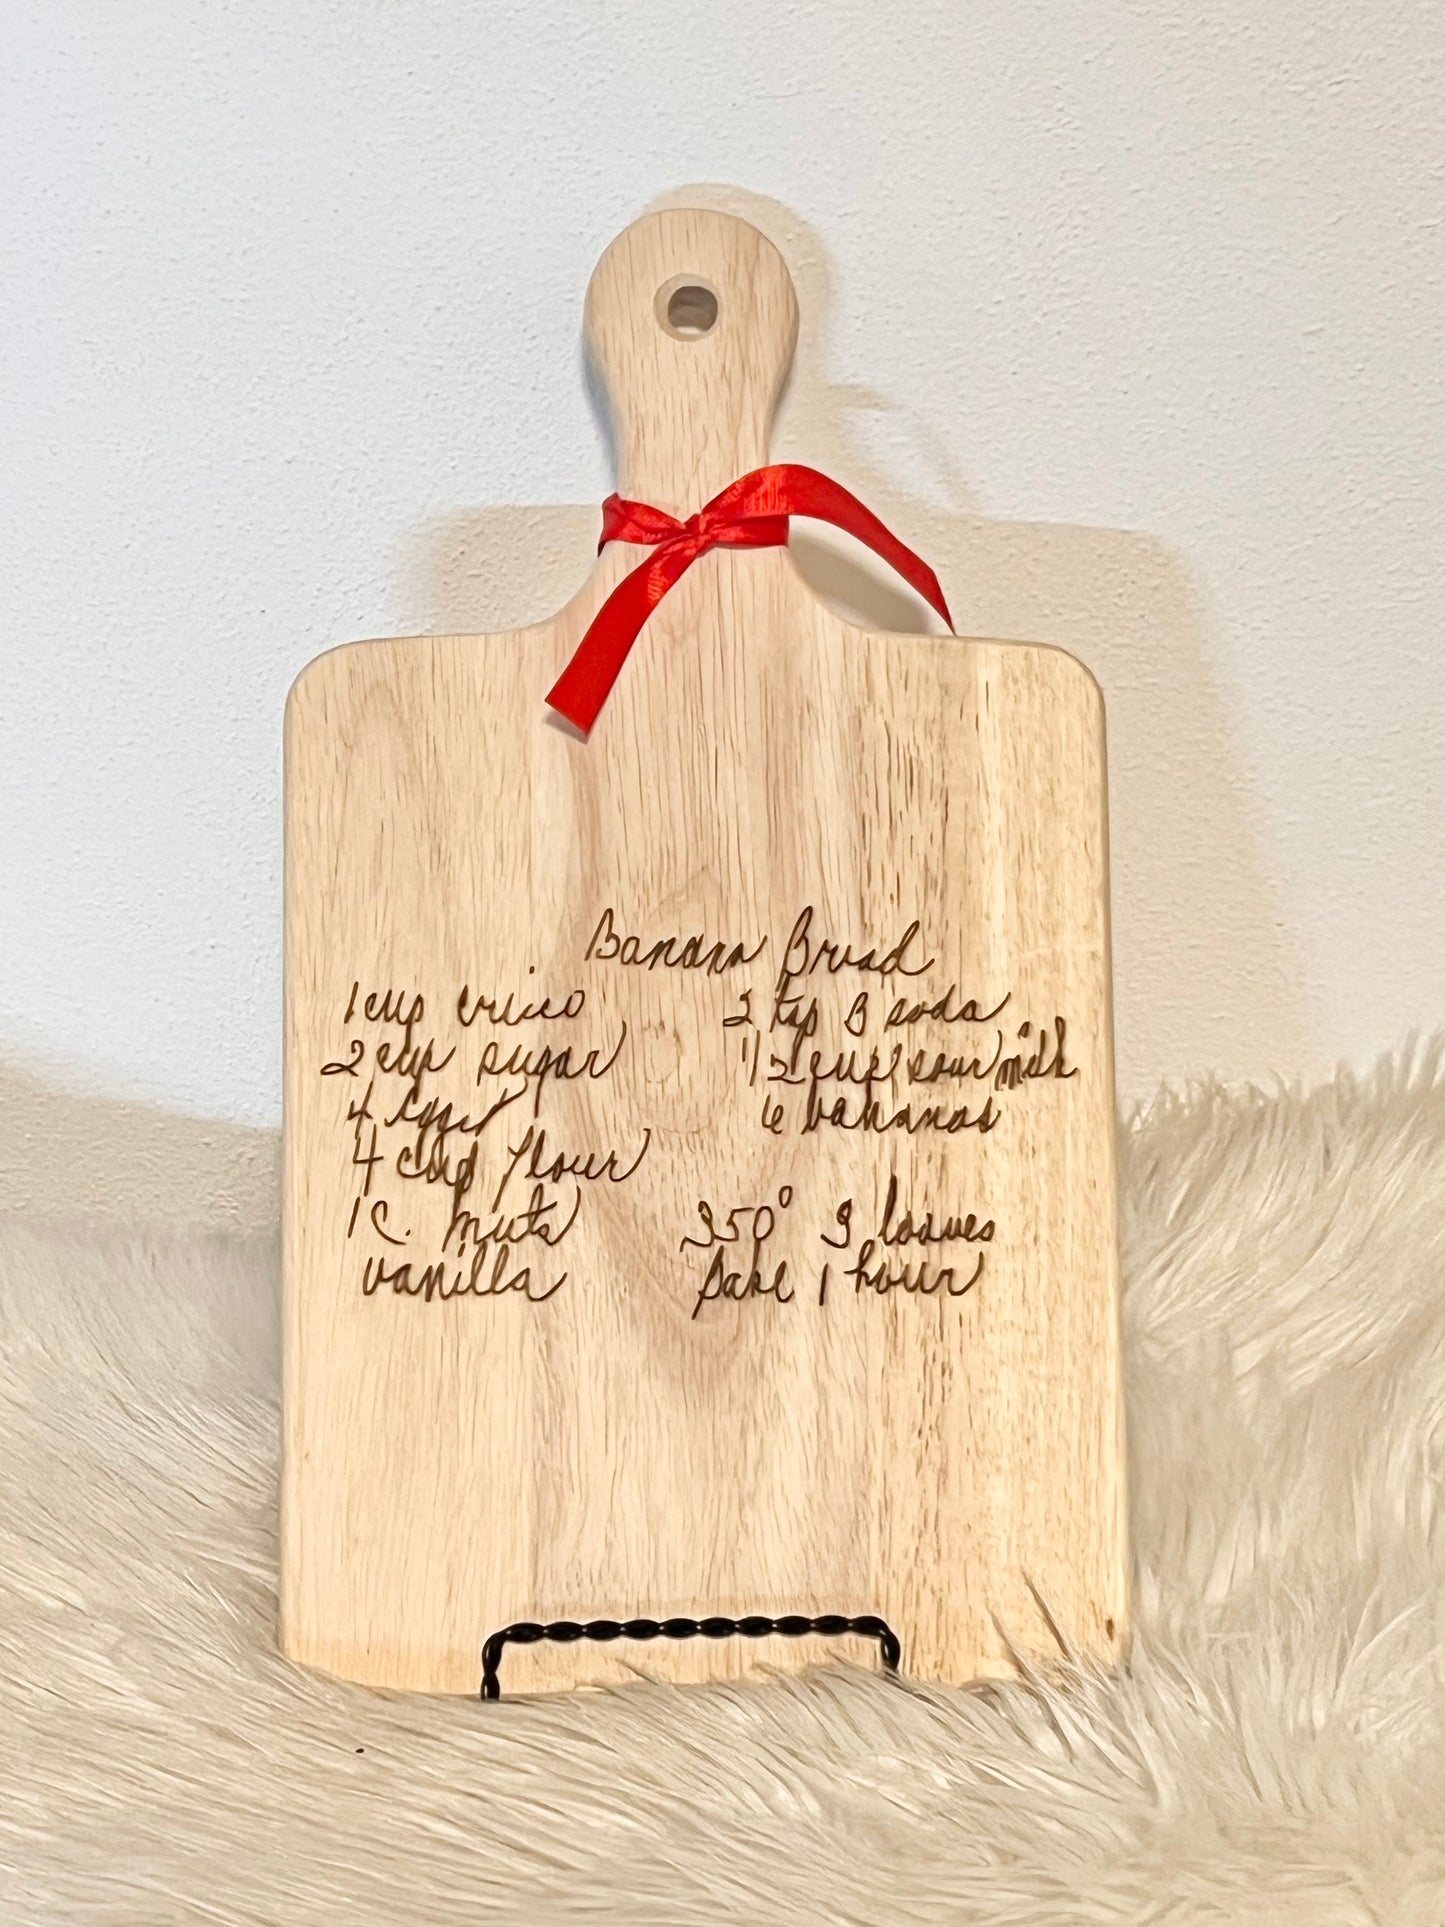 Banana Bread
1 cup crisco
2 cup sugar
4 eggs
4 cup flour
1 c. nuts
vanilla
2 tsp B soda
1/2 cup sour milk
6 bananas
350° 3 loaves
Bake 1 hour